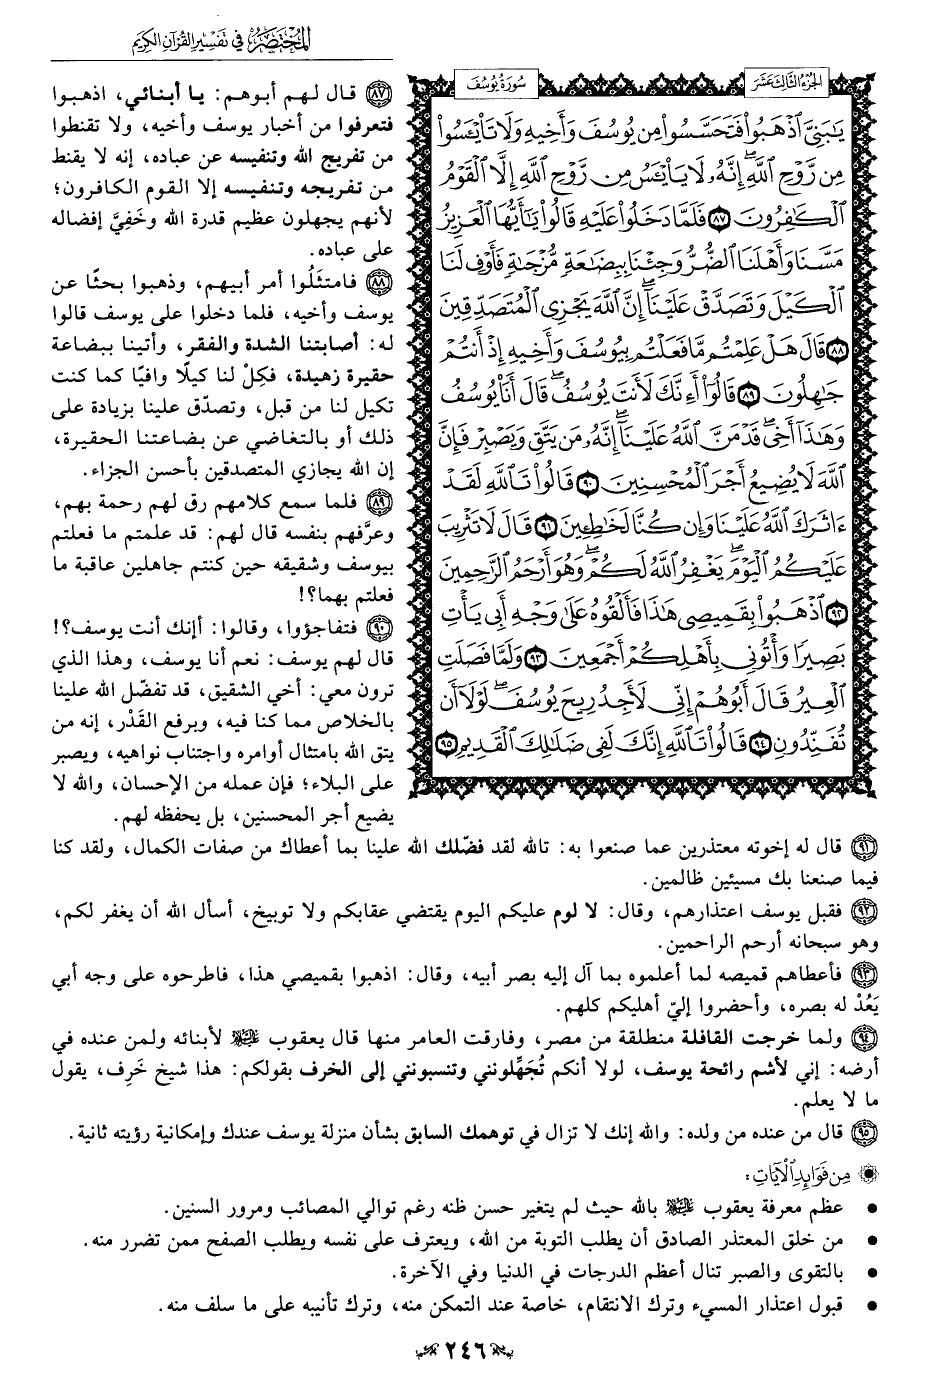 المختصر في تفسير القرآن الكريم
الجزء الثالث عشر
سورة يوسف
يَٰبَنِيَّ ٱذْهَبُوا۟ فَتَحَسَّسُوا۟ مِن يُوسُفَ وَأَخِيهِ وَلَا تَا۟يْـَٔسُوا۟
مِن رَّوْحِ ٱللَّهِ ۖ إِنَّهُۥ لَا يَا۟يْـَٔسُ مِن رَّوْحِ ٱللَّهِ إِلَّا ٱلْقَوْمُ
ٱلْكَٰفِرُونَ ٨٧ فَلَمَّا دَخَلُوا۟ عَلَيْهِ قَالُوا۟ يَٰٓأَيُّهَا ٱلْعَزِيزُ
مَسَّنَا وَأَهْلَنَا ٱلضُّرُّ وَجِئْنَا بِبِضَٰعَةٍ مُّزْجَىٰةٍ فَأَوْفِ لَنَا
ٱلْكَيْلَ وَتَصَدَّقْ عَلَيْنَآ ۖ إِنَّ ٱللَّهَ يَجْزِى ٱلْمُتَصَدِّقِينَ
٨٨ قَالَ هَلْ عَلِمْتُم مَّا فَعَلْتُم بِيُوسُفَ وَأَخِيهِ إِذْ أَنتُمْ
جَٰهِلُونَ ٨٩ قَالُوٓا۟ أَءِنَّكَ لَأَنتَ يُوسُفُ ۖ قَالَ أَنَا۠ يُوسُفُ
وَهَٰذَآ أَخِى ۖ قَدْ مَنَّ ٱللَّهُ عَلَيْنَآ ۖ إِنَّهُۥ مَن يَتَّقِ وَيَصْبِرْ فَإِنَّ
ٱللَّهَ لَا يُضِيعُ أَجْرَ ٱلْمُحْسِنِينَ ٩٠ قَالُوا۟ تَٱللَّهِ لَقَدْ
ءَاثَرَكَ ٱللَّهُ عَلَيْنَا وَإِن كُنَّا لَخَٰطِـِٔينَ ٩١ قَالَ لَا تَثْرِيبَ
عَلَيْكُمُ ٱلْيَوْمَ ۖ يَغْفِرُ ٱللَّهُ لَكُمْ ۖ وَهُوَ أَرْحَمُ ٱلرَّٰحِمِينَ
٩٢ ٱذْهَبُوا۟ بِقَمِيصِى هَٰذَا فَأَلْقُوهُ عَلَىٰ وَجْهِ أَبِى يَأْتِ
بَصِيرًا وَأْتُونِى بِأَهْلِكُمْ أَجْمَعِينَ ٩٣ وَلَمَّا فَصَلَتِ
ٱلْعِيرُ قَالَ أَبُوهُمْ إِنِّى لَأَجِدُ رِيحَ يُوسُفَ ۖ لَوْلَآ أَن
تُفَنِّدُونِ ٩٤ قَالُوا۟ تَٱللَّهِ إِنَّكَ لَفِى ضَلَٰلِكَ ٱلْقَدِيمِ ٩٥
٨٧ قال لهم أبوهم: يا أبنائي، اذهبوا
فتعرفوا من أخبار يوسف وأخيه، ولا تقنطوا
من تفريج الله وتنفيسه عن عباده، إنه لا يقنط
من تفريجه وتنفيسه إلا القوم الكافرون؛
لأنهم يجهلون عظيم قدرة الله وخَفِيَّ إفضاله
على عباده.
٨٨ فامتثَلُوا أمر أبيهم، وذهبوا بحثًا عن
يوسف وأخيه، فلما دخلوا على يوسف قالوا
له: أصابتنا الشدة والفقر، وأتينا ببضاعة
حقيرة زهيدة، فكِلْ لنا كيلًا وافيًا كما كنت
تكيل لنا من قبل، وتصدّق علينا بزيادة على
ذلك أو بالتغاضي عن بضاعتنا الحقيرة،
إن الله يجازي المتصدقين بأحسن الجزاء.
٨٩ فلما سمع كلامهم رق لهم رحمة بهم،
وعرَّفهم بنفسه قال لهم: قد علمتم ما فعلتم
بيوسف وشقيقه حين كنتم جاهلين عاقبة ما
فعلتم بهما؟!
٩٠ فتفاجؤوا، وقالوا: أإنك أنت يوسف؟!
قال لهم يوسف: نعم أنا يوسف، وهذا الذي
ترون معي: أخي الشقيق، قد تفضّل الله علينا
بالخلاص مما كنا فيه، وبرفع القَدْر، إنه من
يتق الله بامتثال أوامره واجتناب نواهيه، ويصبر
على البلاء؛ فإن عمله من الإحسان، والله لا
يضيع أجر المحسنين، بل يحفظه لهم.
٩١ قال له إخوته معتذرين عما صنعوا به: تالله لقد فضّلك الله علينا بما أعطاك من صفات الكمال، ولقد كنا
فيما صنعنا بك مسيئين ظالمين.
٩٢ فقبل يوسف اعتذارهم، وقال: لا لوم عليكم اليوم يقتضي عقابكم ولا توبيخ، أسأل الله أن يغفر لكم،
وهو سبحانه أرحم الراحمين.
٩٣ فأعطاهم قميصه لما أعلموه بما آل إليه بصر أبيه، وقال: اذهبوا بقميصي هذا، فاطرحوه على وجه أبي
يَعُدْ له بصره، وأحضروا إليّ أهليكم كلهم.
٩٤ ولما خرجت القافلة منطلقة من مصر، وفارقت العامر منها قال يعقوب عليه السلام لأبنائه ولمن عنده في
أرضه: إني لأشم رائحة يوسف، لولا أنكم تُجَهِّلونني وتنسبونني إلى الخرف بقولكم: هذا شيخ خَرِف، يقول
ما لا يعلم.
٩٥ قال من عنده من ولده: والله إنك لا تزال في توهمك السابق بشأن منزلة يوسف عندك وإمكانية رؤيته ثانية.
مِن فَوَائِدِ الْآيَاتِ:
• عظم معرفة يعقوب عليه السلام بالله حيث لم يتغير حسن ظنه رغم توالي المصائب ومرور السنين.
• من خلق المعتذر الصادق أن يطلب التوبة من الله، ويعترف على نفسه ويطلب الصفح ممن تضرر منه.
• بالتقوى والصبر تنال أعظم الدرجات في الدنيا وفي الآخرة.
• قبول اعتذار المسيء وترك الانتقام، خاصة عند التمكن منه، وترك تأنيبه على ما سلف منه.
٢٤٦